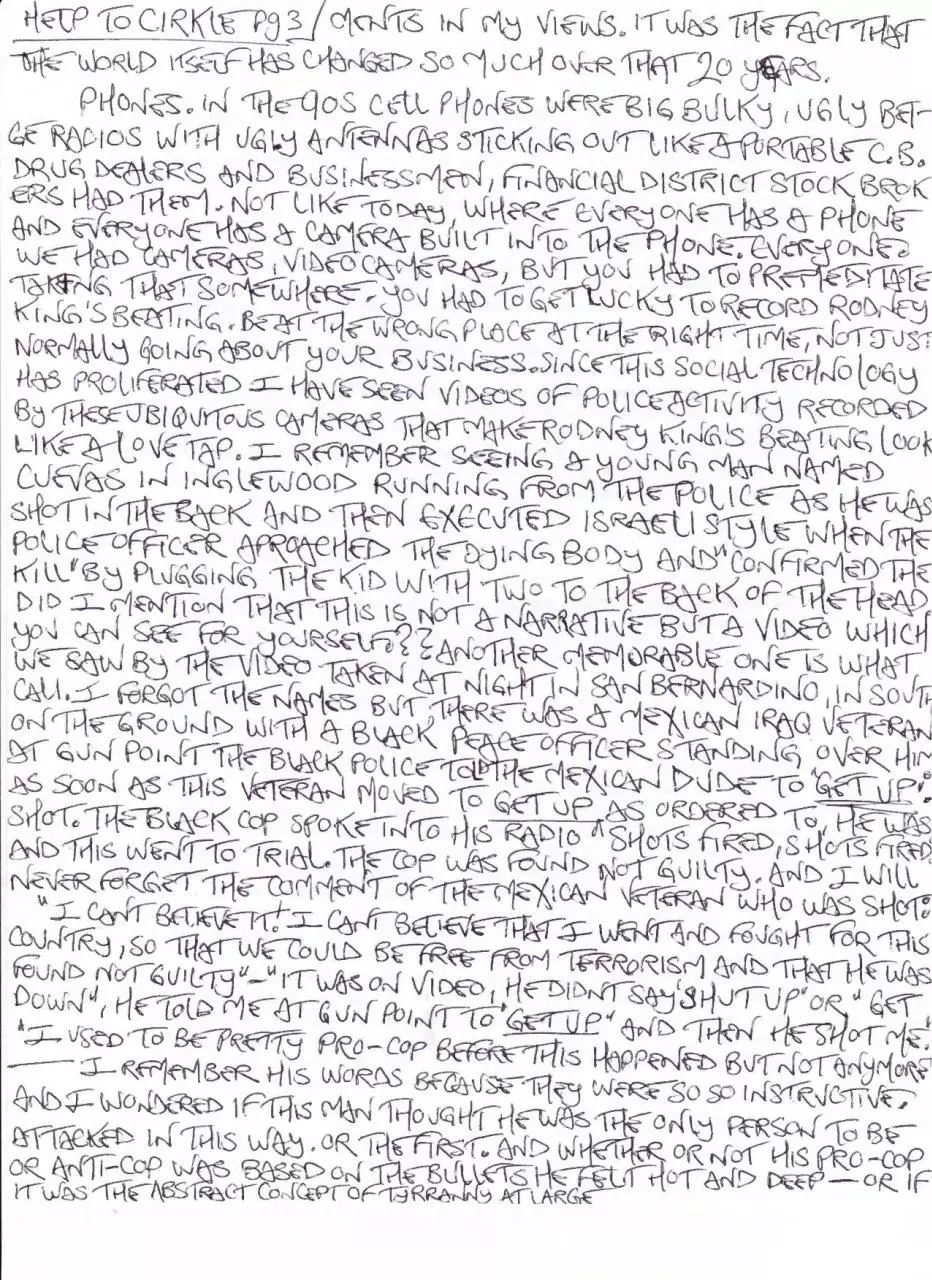 HELP TO CIRKLE Pg 3/ MENTS IN MY VIEWS. IT WAS THE FACT THAT
THE WORLD ITSELF HAS CHANGED SO MUCH OVER THAT 20 YEARS.
PHONES. IN THE 90S CELL PHONES WERE BIG BULKY, UGLY BET-
GE RADIOS WITH UGLY ANTENNAS STICKING OUT LIKE A PORTABLE C.B.
DRUG DEALERS AND BUSINESSMEN, FINANCIAL DISTRICT STOCK BROK
ERS HAD THEM. NOT LIKE TODAY, WHERE EVERYONE HAS A PHONE
AND EVERYONE HAS A CAMERA BUILT INTO THE PHONE. EVERYONE?
WE HAD CAMERAS, VIDEO CAMERAS, BUT YOU HAD TO PREMEDITATE
TAKING THAT SOMEWHERE. YOU HAD TO GET LUCKY TO RECORD RODNEY
KING'S BEATING. BE AT THE WRONG PLACE AT THE RIGHT TIME, NOT JUST
NORMALLY GOING ABOUT YOUR BUSINESS. SINCE THIS SOCIAL TECHNOLOGY
HAS PROLIFERATED I HAVE SEEN VIDEOS OF POLICE ACTIVITY RECORDED
BY THESE UBIQUITOUS CAMERAS THAT MAKE RODNEY KING'S BEATING LOOK
LIKE A LOVE TAP. I REMEMBER SEEING A YOUNG MAN NAMED
CUEVAS IN INGLEWOOD RUNNING FROM THE POLICE AS HE WAS
SHOT IN THE BACK AND THEN EXECUTED ISRAELI STYLE WHEN THE
POLICE OFFICER APROACHED THE DYING BODY AND "CONFIRMED THE
KILL" BY PLUGGING THE KID WITH TWO TO THE BACK OF THE HEAD
DID I MENTION THAT THIS IS NOT A NARRATIVE BUT A VIDEO WHICH
YOU CAN SEE FOR YOURSELF?? ANOTHER MEMORABLE ONE IS WHAT
WE SAW BY THE VIDEO TAKEN AT NIGHT IN SAN BERNARDINO, IN SOUTH
CALI. I FORGOT THE NAMES BUT THERE WAS A MEXICAN IRAQ VETERAN
ON THE GROUND WITH A BLACK PEACE OFFICER STANDING OVER HIM
AT GUN POINT THE BLACK POLICE TOLD THE MEXICAN DUDE TO "GET UP".
AS SOON AS THIS VETERAN MOVED TO GET UP AS ORDERED TO, HE WAS
SHOT. THE BLACK COP SPOKE INTO HIS RADIO "SHOTS FIRED, SHOTS FIRED
AND THIS WENT TO TRIAL. THE COP WAS FOUND NOT GUILTY. AND I WILL
NEVER FORGET THE COMMENT OF THE MEXICAN VETERAN WHO WAS SHOT:
"I CANT BELIEVE IT! I CANT BELIEVE THAT I WENT AND FOUGHT FOR THIS
COUNTRY, SO THAT WE COULD BE FREE FROM TERRORISM AND THAT HE WAS
FOUND NOT GUILTY" - "IT WAS ON VIDEO, HE DIDNT SAY 'SHUT UP' OR "GET
DOWN", HE TOLD ME AT GUN POINT TO "GET UP" AND THEN HE SHOT ME."
"I USED TO BE PRETTY PRO-COP BEFORE THIS HAPPENED BUT NOT ANYMORE
— I REMEMBER HIS WORDS BECAUSE THEY WERE SO SO INSTRUCTIVE.
AND I WONDERED IF THIS MAN THOUGHT HE WAS THE ONLY PERSON TO BE
ATTACKED IN THIS WAY. OR THE FIRST. AND WHETHER OR NOT HIS PRO-COP
OR ANTI-COP WAS BASED ON THE BULLETS HE FELT HOT AND DEEP — OR IF
IT WAS THE ABSTRACT CONCEPT OF TYRRANNY AT LARGE